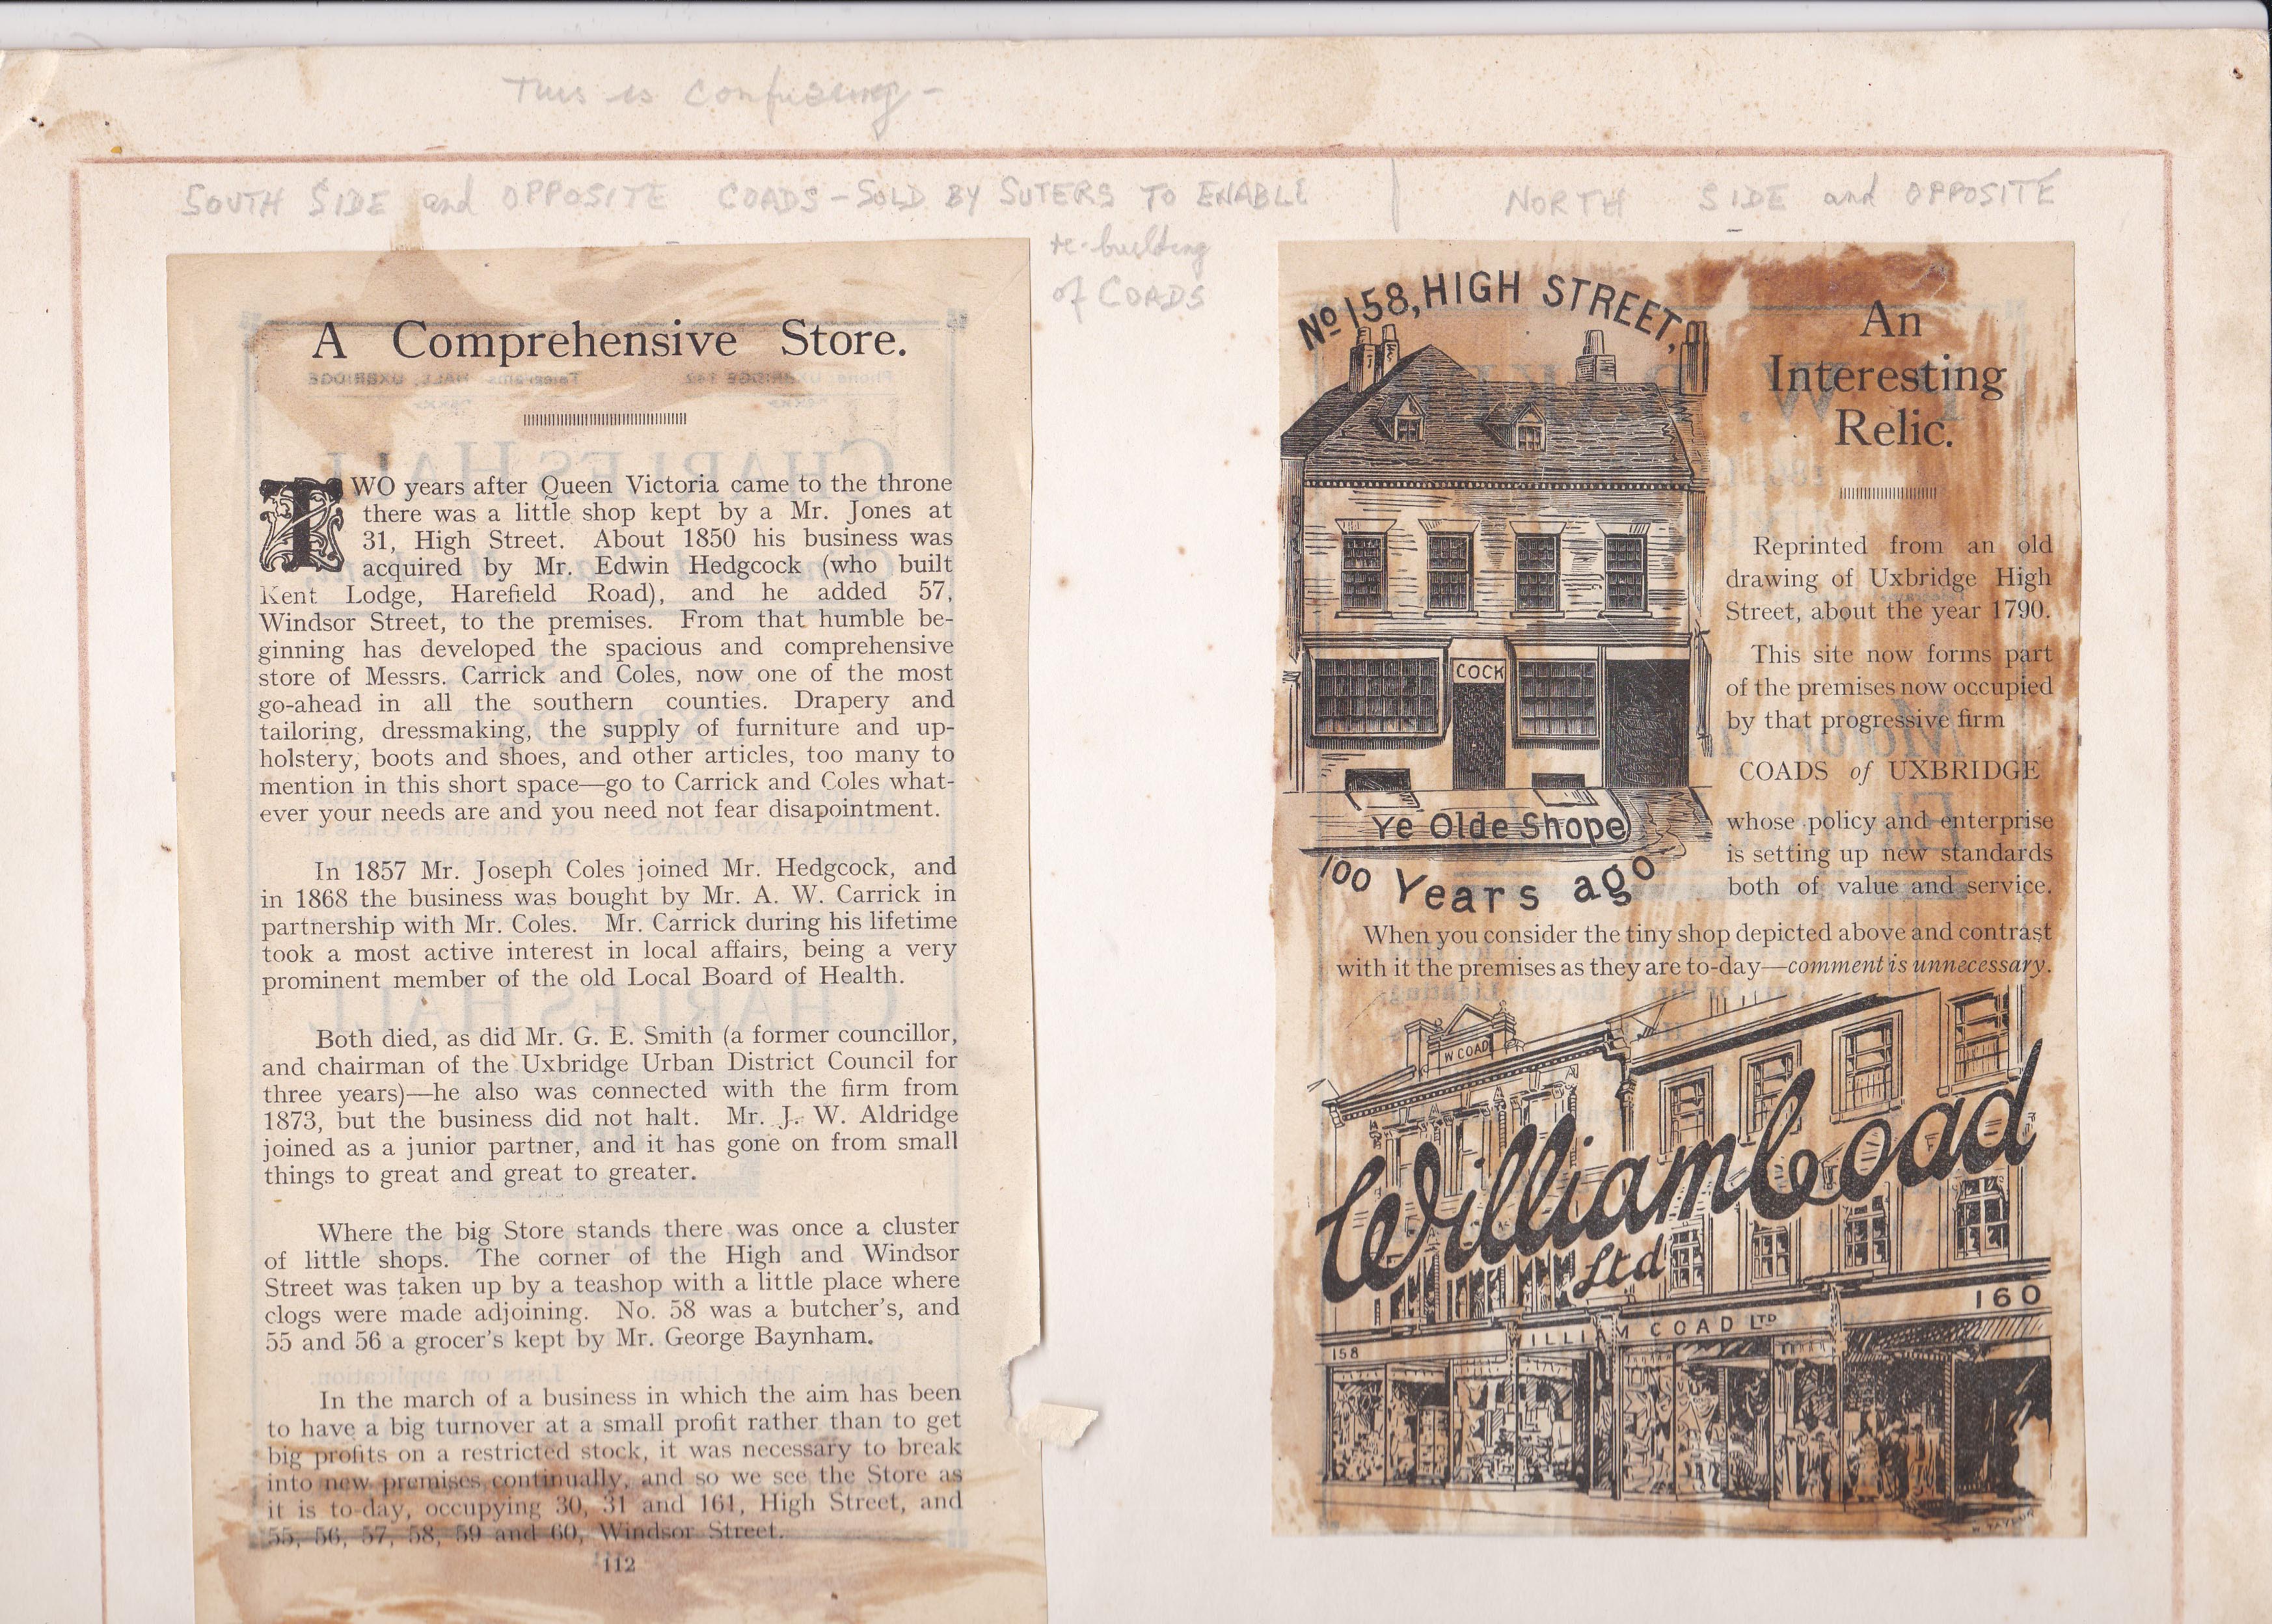 This is confusing -
SOUTH SIDE and OPPOSITE COADS - SOLD BY SUTERS TO ENABLE
re-building
of COADS
NORTH SIDE and OPPOSITE
A Comprehensive Store.
TWO years after Queen Victoria came to the throne
there was a little shop kept by a Mr. Jones at
31, High Street. About 1850 his business was
acquired by Mr. Edwin Hedgcock (who built
Kent Lodge, Harefield Road), and he added 57,
Windsor Street, to the premises. From that humble be-
ginning has developed the spacious and comprehensive
store of Messrs. Carrick and Coles, now one of the most
go-ahead in all the southern counties. Drapery and
tailoring, dressmaking, the supply of furniture and up-
holstery, boots and shoes, and other articles, too many to
mention in this short space—go to Carrick and Coles what-
ever your needs are and you need not fear disapointment.
In 1857 Mr. Joseph Coles joined Mr. Hedgcock, and
in 1868 the business was bought by Mr. A. W. Carrick in
partnership with Mr. Coles. Mr. Carrick during his lifetime
took a most active interest in local affairs, being a very
prominent member of the old Local Board of Health.
Both died, as did Mr. G. E. Smith (a former councillor,
and chairman of the Uxbridge Urban District Council for
three years)—he also was connected with the firm from
1873, but the business did not halt. Mr. J. W. Aldridge
joined as a junior partner, and it has gone on from small
things to great and great to greater.
Where the big Store stands there was once a cluster
of little shops. The corner of the High and Windsor
Street was taken up by a teashop with a little place where
clogs were made adjoining. No. 58 was a butcher's, and
55 and 56 a grocer's kept by Mr. George Baynham.
In the march of a business in which the aim has been
to have a big turnover at a small profit rather than to get
big profits on a restricted stock, it was necessary to break
into new premises continually, and so we see the Store as
it is to-day, occupying 30, 31 and 161, High Street, and
55, 56, 57, 58, 59 and 60, Windsor Street.
112
No 158, HIGH STREET,
COCK
Ye Olde Shope
100 Years ago
An
Interesting
Relic.
Reprinted from an old
drawing of Uxbridge High
Street, about the year 1790.
This site now forms part
of the premises now occupied
by that progressive firm
COADS of UXBRIDGE
whose policy and enterprise
is setting up new standards
both of value and service.
When you consider the tiny shop depicted above and contrast
with it the premises as they are to-day—comment is unnecessary.
W COAD
William Coad
Ltd
160
WILLIAM COAD LTD
158